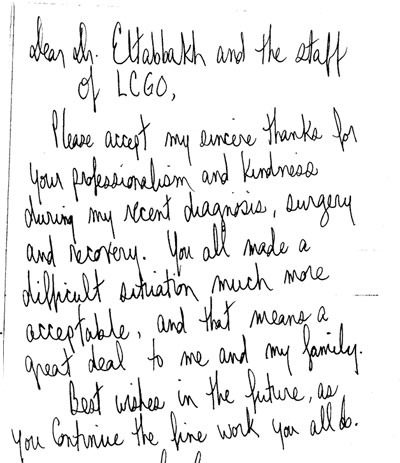 Dear Dr. Eltabbakh and the staff
of LCGO,
Please accept my sincere thanks for
your professionalism and kindness
during my recent diagnosis, surgery
and recovery. You all made a
difficult situation much more
acceptable, and that means a
great deal to me and my family.
Best wishes in the future, as
you continue the fine work you all do.